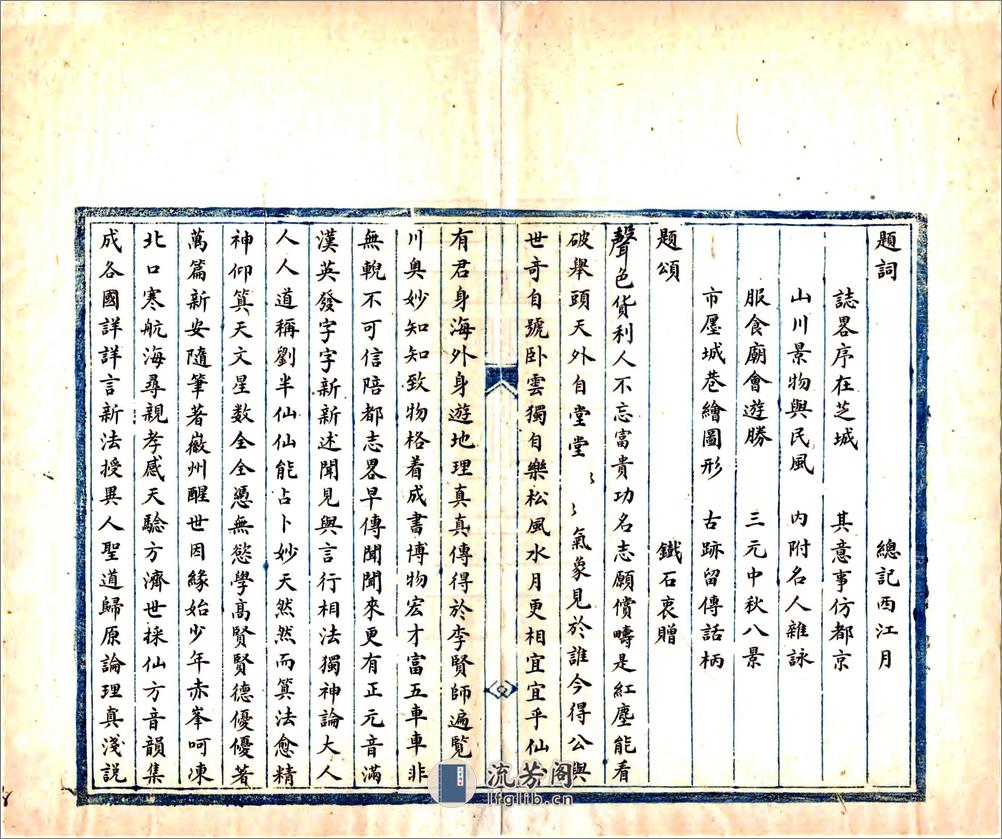 題詞 總記西江月
誌畧序在芝城 其意事仿都京
山川景物與民風 內附名人雜詠
服食廟會遊勝 三元中秋八景
市廛城巷繪圖形 古跡留傳話柄
題頌 鐵石衷贈
聲色貨利人不忘富貴功名志願償疇是紅塵能看
破舉頭天外自堂堂〻〻氣象見於誰今得公與
世奇自號卧雲獨自樂松風水月更相宜宜乎仙
有君身海外身遊地理真真傳得於李賢師遍覽
川奥妙知知致物格着成書博物宏才富五車車非
無輗不可信陪都志畧早傳聞聞來更有正元音滿
漢英發字字新新述聞見與言行相法獨神論大人
人人道稱劉半仙仙能占卜妙天然然而算法愈精
神仰箕天文星数全全憑無慾學髙賢賢德優優著
萬篇新安隨筆著嚴州醒世因緣始少年赤峯呵凍
北口寒航海尋親孝感天驗方濟世採仙方音韻集
成各國詳詳言新法授異人聖道歸原論理真淺說
流芳阁
lfglib.cn